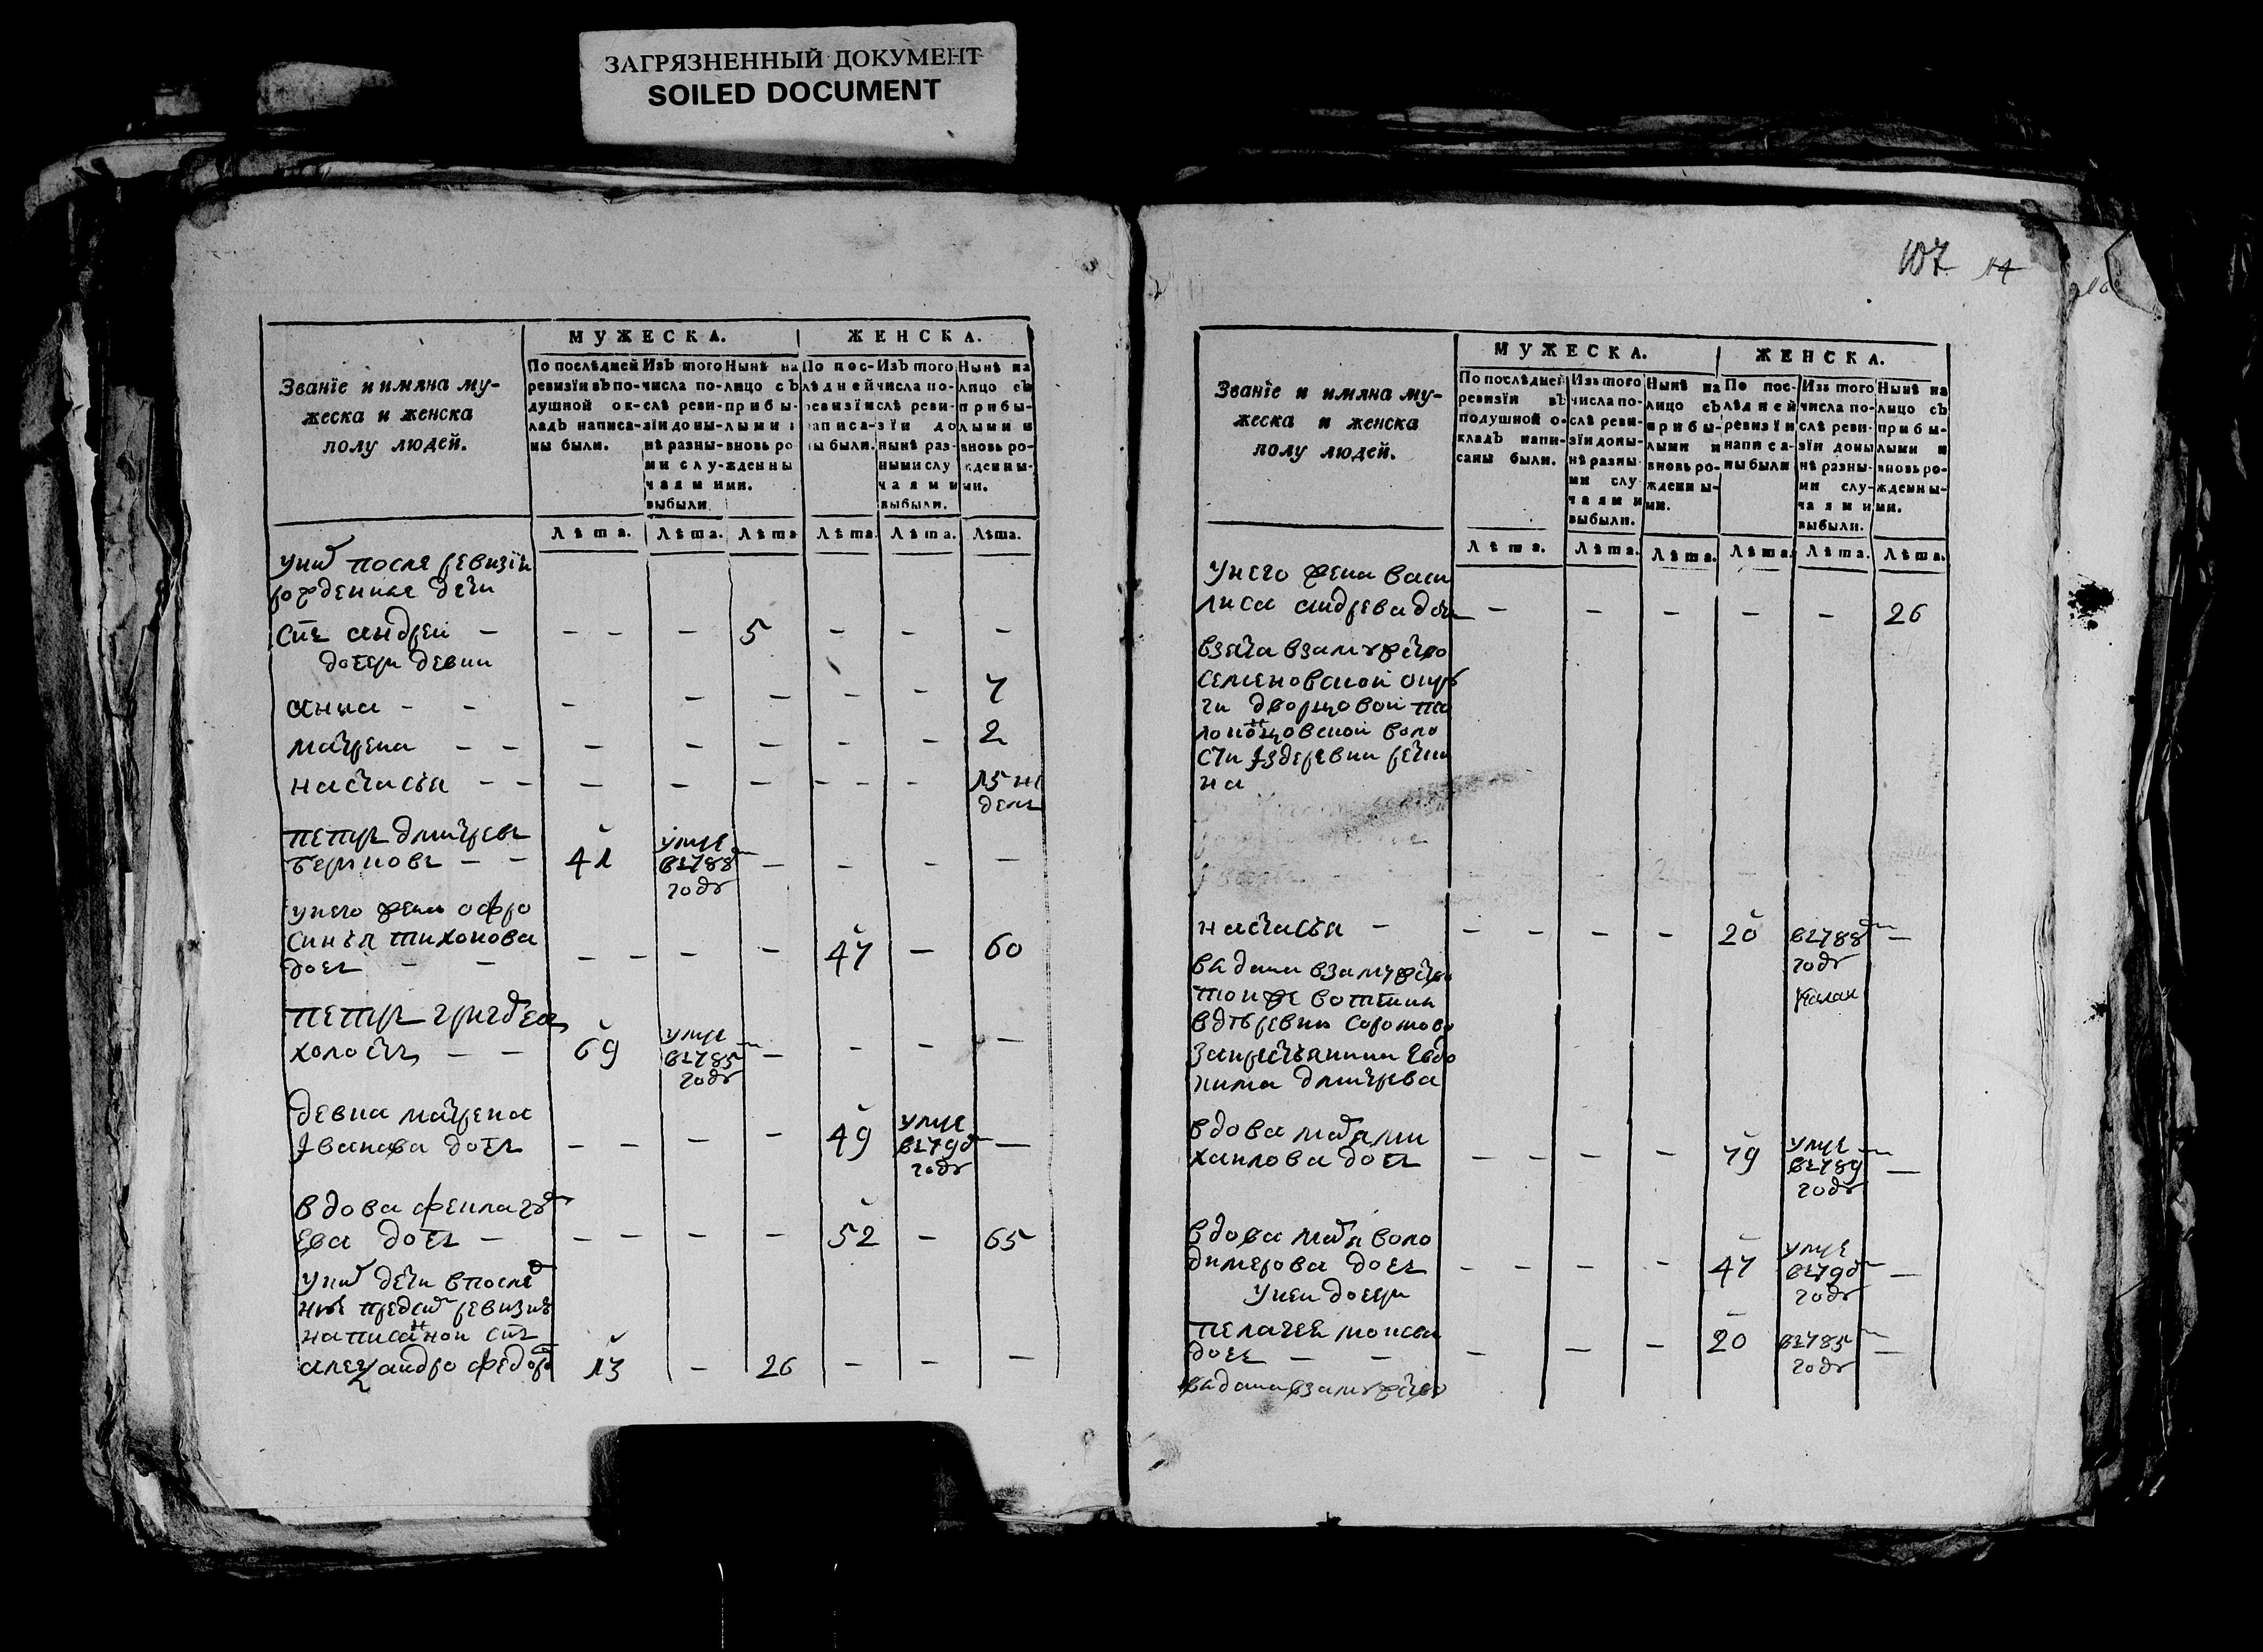 ЗАГРЯЗНЕННЫЙ ДОКУМЕНТ
SOILED DOCUMENT
МУЖЕСКА. ЖЕНСКА.
Званїе и имяна му-
жеска и женска
полу людей.
По послѣдней ревизїи въ подушной окладъ написаны были.
Изъ того числа послѣ ревизїи донынѣ разными случаями выбыли.
Нынѣ на лицо съ прибылыми и вновь рожденными.
По послѣдней ревизїи написаны были.
Изъ того числа послѣ ревизїи до нынѣ разными случаями выбыли.
Нынѣ на лицо съ прибылыми и вновь рожденными.
Лѣта. Лѣта. Лѣта Лѣта. Лѣта. Лѣта.
у них после ревизїи
рожденные дети
снъ андреи – – – – 5 – – –
дочери девки
анна – – – – – – – 7
матрена – – – – – – – 2
настасья – – – – – – – – 15 не
дель
петръ дмитревъ
41 умре
въ788
году
у него жена офро
синья тихонова
доч – – – – – – 47 – 60
петръ
69 умре
въ785
году
девка матрена
Iванова дочь – – – – 49 умре
въ790
году
вдова
ева дочь – – – – – 52 – 65
у них дети в послед
неи пред сим ревизии
написаннои снъ
александро федоръ 13 – 26 – – –
107 14
МУЖЕСКА. ЖЕНСКА.
Званїе и имяна му-
жеска и женска
полу людей.
По послѣдней ревизїи въ подушной окладъ написаны были.
Изъ того числа послѣ ревизїи донынѣ разными случаями выбыли.
Нынѣ на лицо съ прибылыми и вновь рожденными.
По послѣдней ревизїи написаны были
Изъ того числа послѣ ревизїи донынѣ разными случаями выбыли.
Нынѣ на лицо съ прибылыми и вновь рожденными.
Лѣта. Лѣта. Лѣта. Лѣта. Лѣта. Лѣта.
У него жена васи
лиса андрева доч – – – – – 26
взята взамужство
семеновскои окру
ги дворцовои
воло
сти Iз деревни
на
настасья – – – – – 20 въ788
году
выдана взамужство
тои же вотчины
в деревню
за крестьянина Евдо
кима дмитрева
вдова марья ми
хаилова дочь – – – – 79 умре
въ789
году
вдова марья воло
димерова дочь – – – – 47 умре
въ790
году
У неи дочери
пелагея моисева
дочь – – – – – 20 въ785
году
выдана взамужство